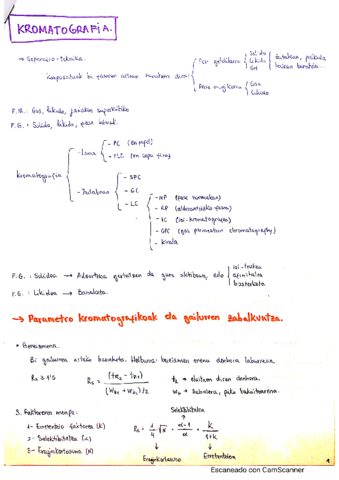 KROMATOGRAFIA.
→ Separazio-teknika.
Konposatuak bi fasetan artean banatzen dira:
Fase geldikorra
Solidu
Likido
Gel
Zutabean, pelikula
Fase mugikorra
Gasa
Likido
F.M.: Gas, likido, jariakin superkritiko
F.G.: Solido, likido, fase
Kromatografia
- Laua
- PC (en papel)
- TLC (en capa fina)
- Zutabean
- SFC
- GC
- LC
- NP (fase normalean)
- RP (alderantzizko fasea)
- IC (ioi-kromatografia)
- GPC (gas permeation chromatography)
- kirala
F.G.: Solidoa → Adsortzioa gertatzen da gune aktiboan, edo
ioi-trukea
afinitatea
F.G.: Likidoa → Banaketa.
→ Parametro kromatografikoak eta gailurren zabalkuntza.
• Bereizmena.
Bi gailurren arteko banaketa. Helburua: bereizmen onena denbora laburrean.
Rs ≥ 1'5
Rs = (tR2 - tR1) / (Wb2 + Wb1)/2
tR → eluitzen diren denbora.
Wb → zabalera, piko bakoitzarena.
3 Faktoreren menpe:
Selektibitatea
1- Erretentzio faktorea (K)
2- Selektibitatea (α)
3- Eraginkortasuna (N)
Rs = 1/4 √N · α-1/α · k/1+k
Eraginkortasuna
Erretentzioa
1
Escaneado con CamScanner